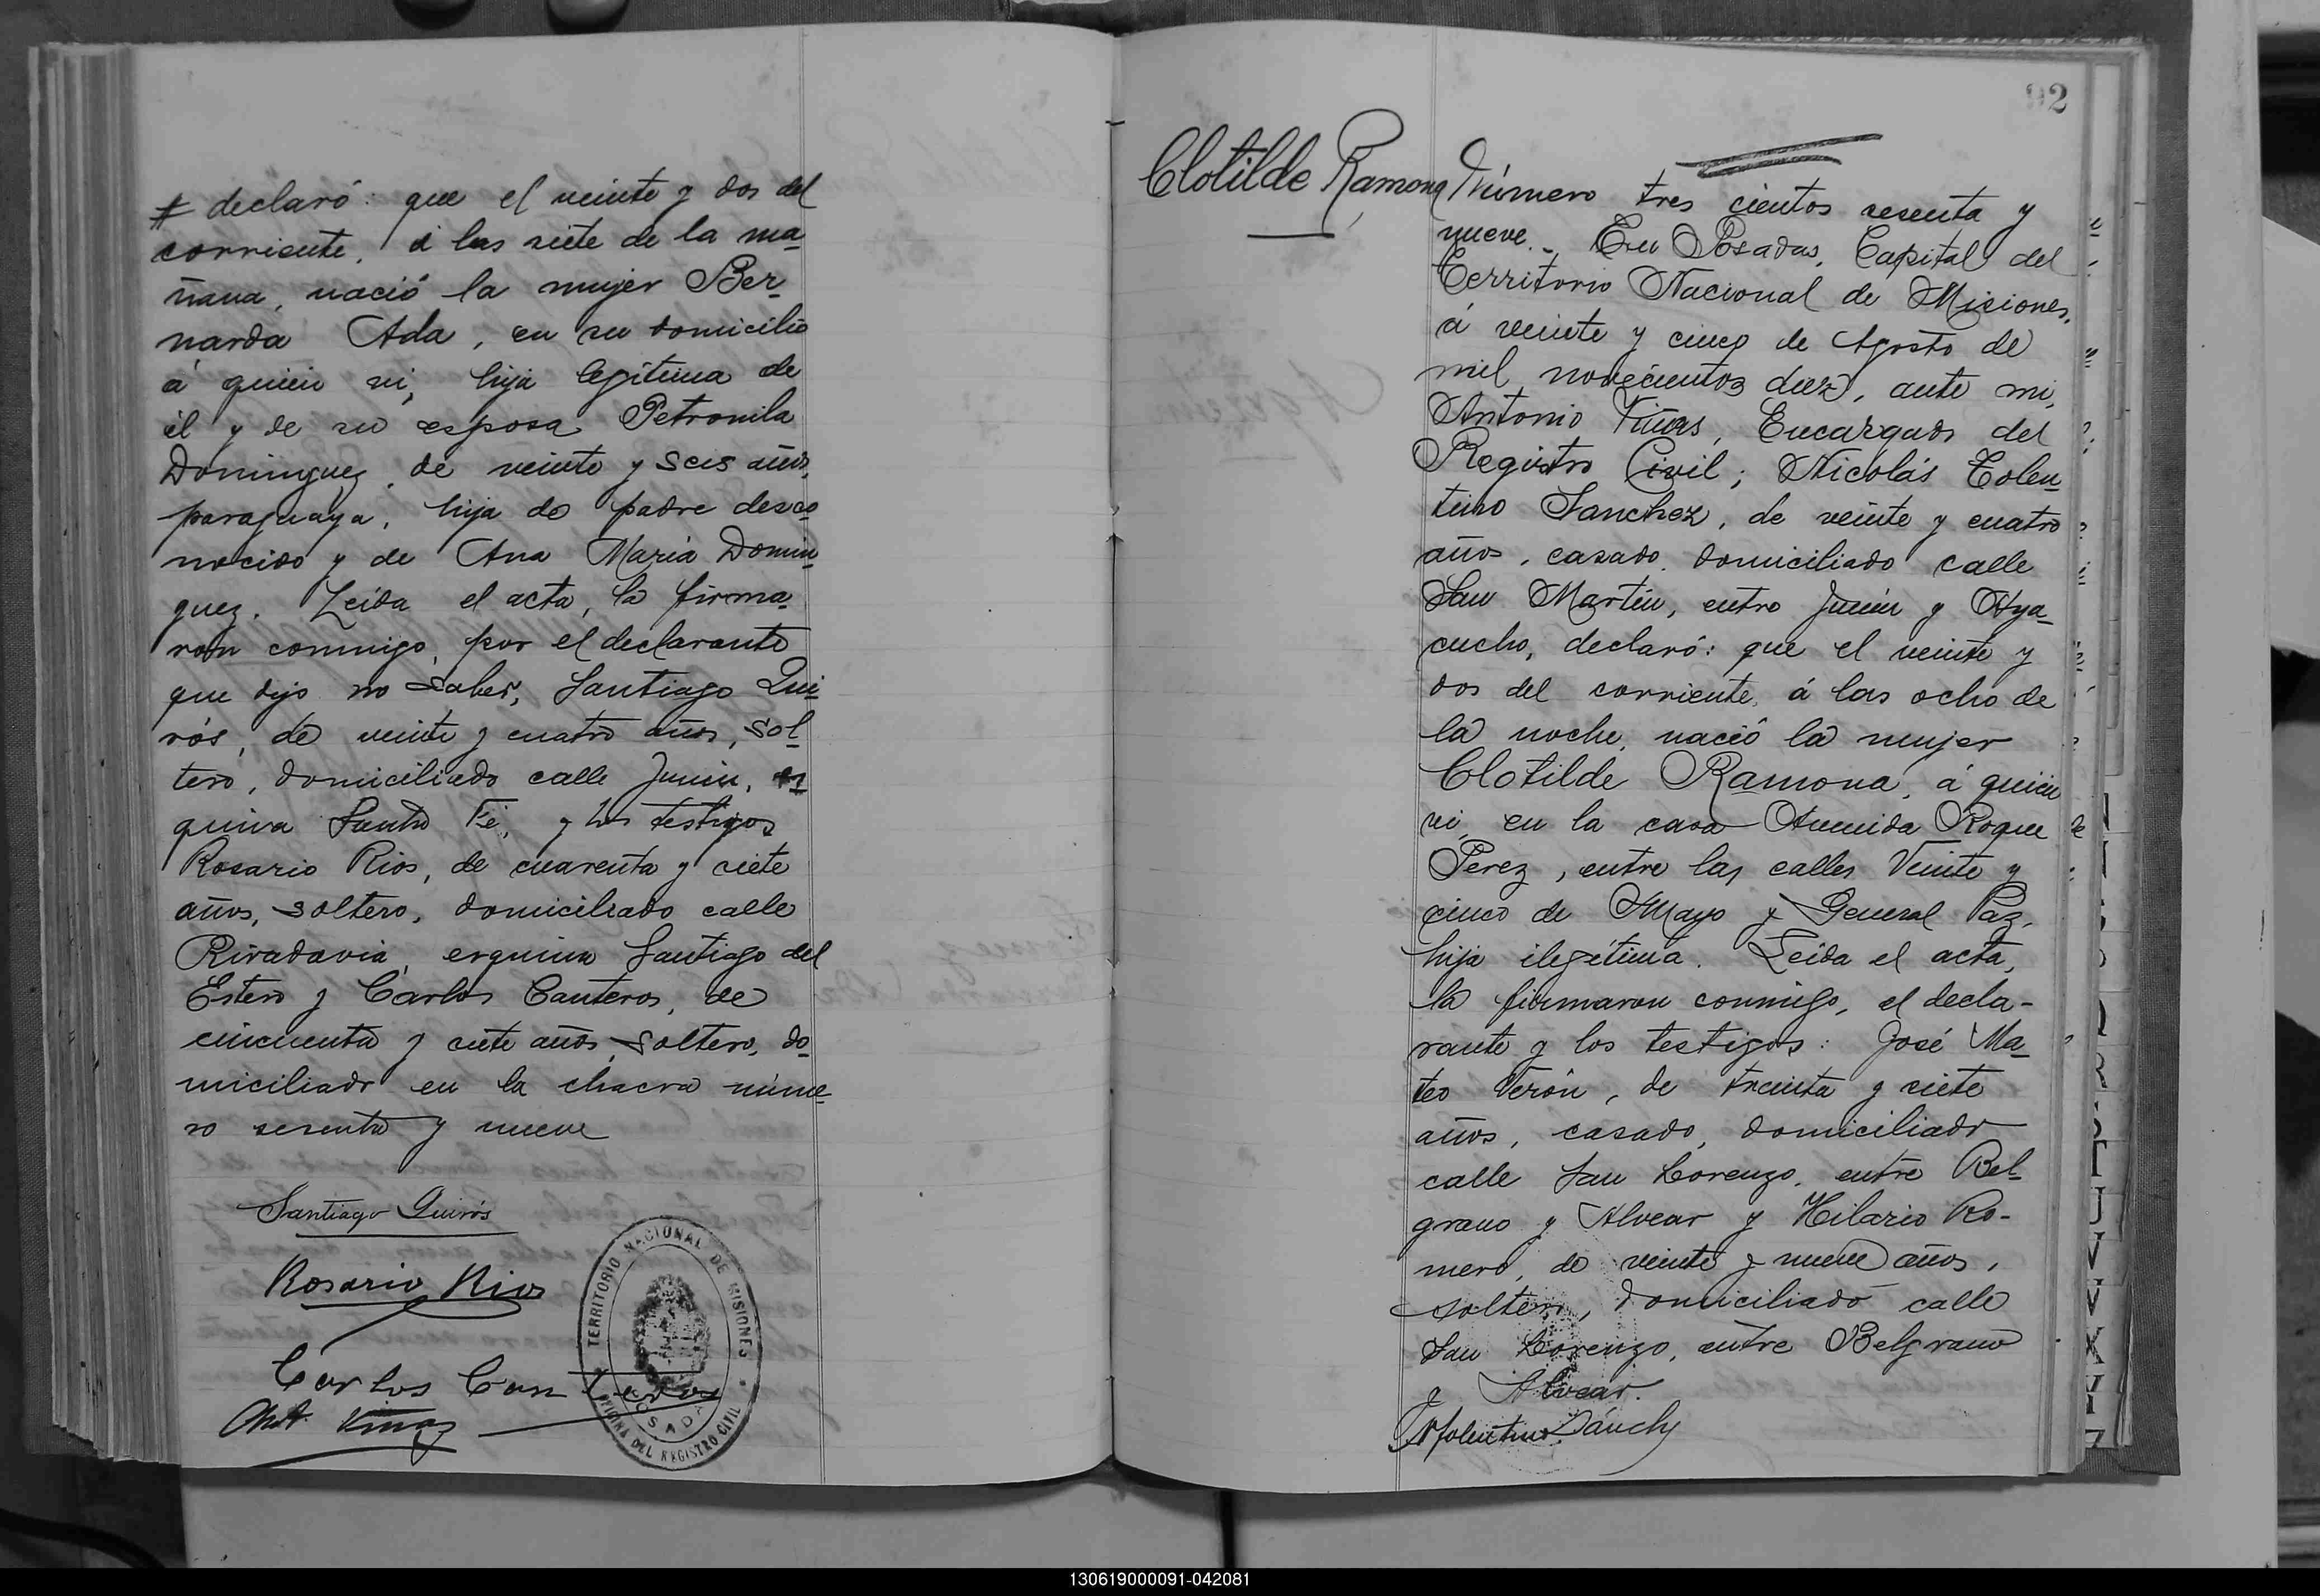 # declaró: que el veinte y dos del
corriente, á las siete de la ma-
ñana, nació la mujer Ber-
narda Ada, en su domicilio
á quien vi, hija legítima de
él y de su esposa Petronila
Dominguez, de veinte y seis años,
paraguaya, hija de padre desco-
nocido y de Ana Maria Domin-
guez. Leida el acta, la firma-
ron conmigo, por el declarante
que dijo no saber, Santiago Qui-
rós, de veinte y cuatro años, sol-
tero, domiciliado calle Junin, es-
quina Santa Fé, y los testigos
Rosario Rios, de cuarenta y siete
años, soltero, domiciliado calle
Rivadavia, esquina Santiago del
Estero y Carlos Canteros, de
cincuenta y siete años, soltero, do-
miciliado en la chacra núme-
ro sesenta y nueve
Santiago Quirós
Rosario Rios
Carlos Canteros
Ant. Viñas
TERRITORIO NACIONAL DE MISIONES
OFICINA DEL REGISTRO CIVIL
POSADAS
92
Clotilde Ramona
Número tres cientos sesenta y
nueve.- En Posadas, Capital del
Territorio Nacional de Misiones,
á veinte y cinco de Agosto de
mil novecientos diez, ante mi,
Antonio Viñas, Encargado del
Registro Civil; Nicolás Tolen-
tino Sanchez, de veinte y cuatro
años, casado, domiciliado calle
San Martin, entre Junin y Aya-
cucho, declaró: que el veinte y
dos del corriente, á las ocho de
la noche, nació la mujer
Clotilde Ramona, á quien
vi, en la casa Avenida Roque
Perez, entre las calles Veinte y
cinco de Mayo y General Paz,
hija ilegítima. Leida el acta,
la firmaron conmigo, el decla-
rante y los testigos: José Ma-
teo Verón, de treinta y siete
años, casado, domiciliado
calle San Lorenzo, entre Bel-
grano y Alvear y Hilario Ro-
mero, de veinte y nueve años,
soltero, domiciliado calle
San Lorenzo, entre Belgrano
y Alvear.
N Tolentino Sánchez
130619000091-042081